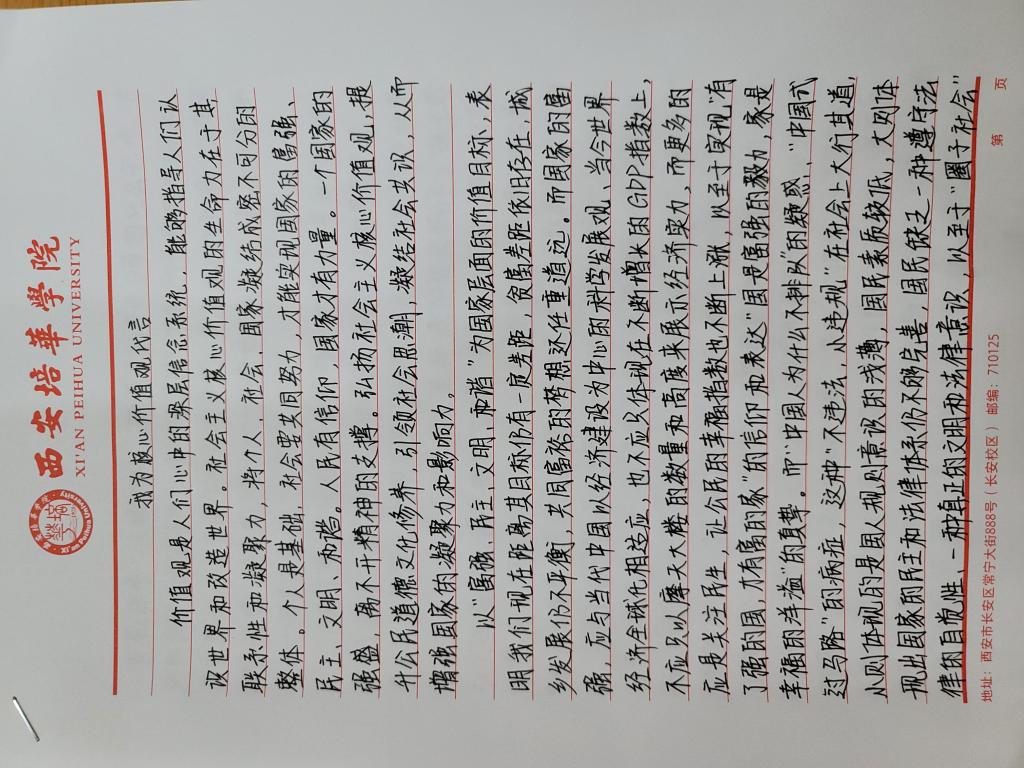 西安培華學院
XI'AN PEIHUA UNIVERSITY
我为核心价值观代言
价值观是人们心中的深层信念系统，能够指导人们认
识世界和改造世界。社会主义核心价值观的生命力在于其
联系性和凝聚力，将个人、社会、国家凝结成密不可分的
整体。个人是基础，社会要共同努力，才能实现国家的富强、
民主、文明、和谐。人民有信仰，国家才有力量。一个国家的
强盛，离不开精神的支撑。弘扬社会主义核心价值观，提
升公民道德文化修养，引领社会思潮，凝结社会共识，从而
增强国家的凝聚力和影响力。
以"富强、民主、文明、和谐"为国家层面的价值目标，表
明我们现在距离其目标仍有一定差距，贫富差距依旧存在，城
乡发展仍不平衡，共同富裕的梦想还任重道远。而国家的富
强，应与当代中国以经济建设为中心的科学发展观、当今世界
经济全球化相适应，也不应只体现在不断增长的GDP指数上，
不应只以摩天大楼的数量和高度来展示经济实力，而更多的
应是关注民生，让公民的幸福指数也不断上涨，以至于实现"有
了强的国，才有富的家"的信仰和表达"国是富强的毅力，家是
幸福的洋溢"的真挚。而"中国人为什么不排队"的疑惑、"中国式
过马路"的病症，这种"不违法，小违规"在社会上大行其道，
小则体现的是国人规则意识的浅薄，国民素质较低，大则体
现出国家的民主和法律体系仍不够完善，国民缺乏一种遵守法
律的自觉性、一种真正的文明和法律意识，以至于"圈子社会"
地址：西安市长安区常宁大街888号（长安校区） 邮编：710125
第 页